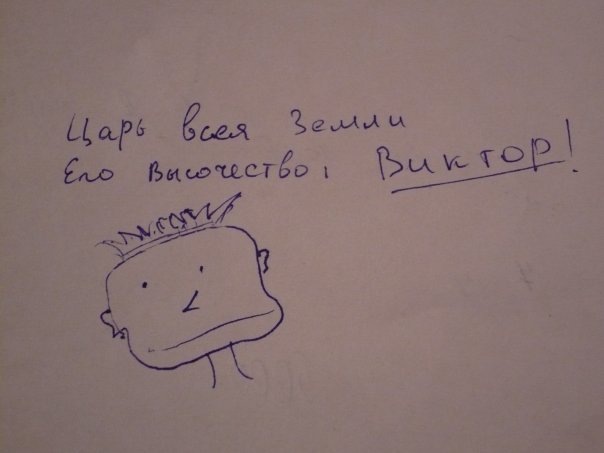 Царь всея Земли
Его Высочество, Виктор!